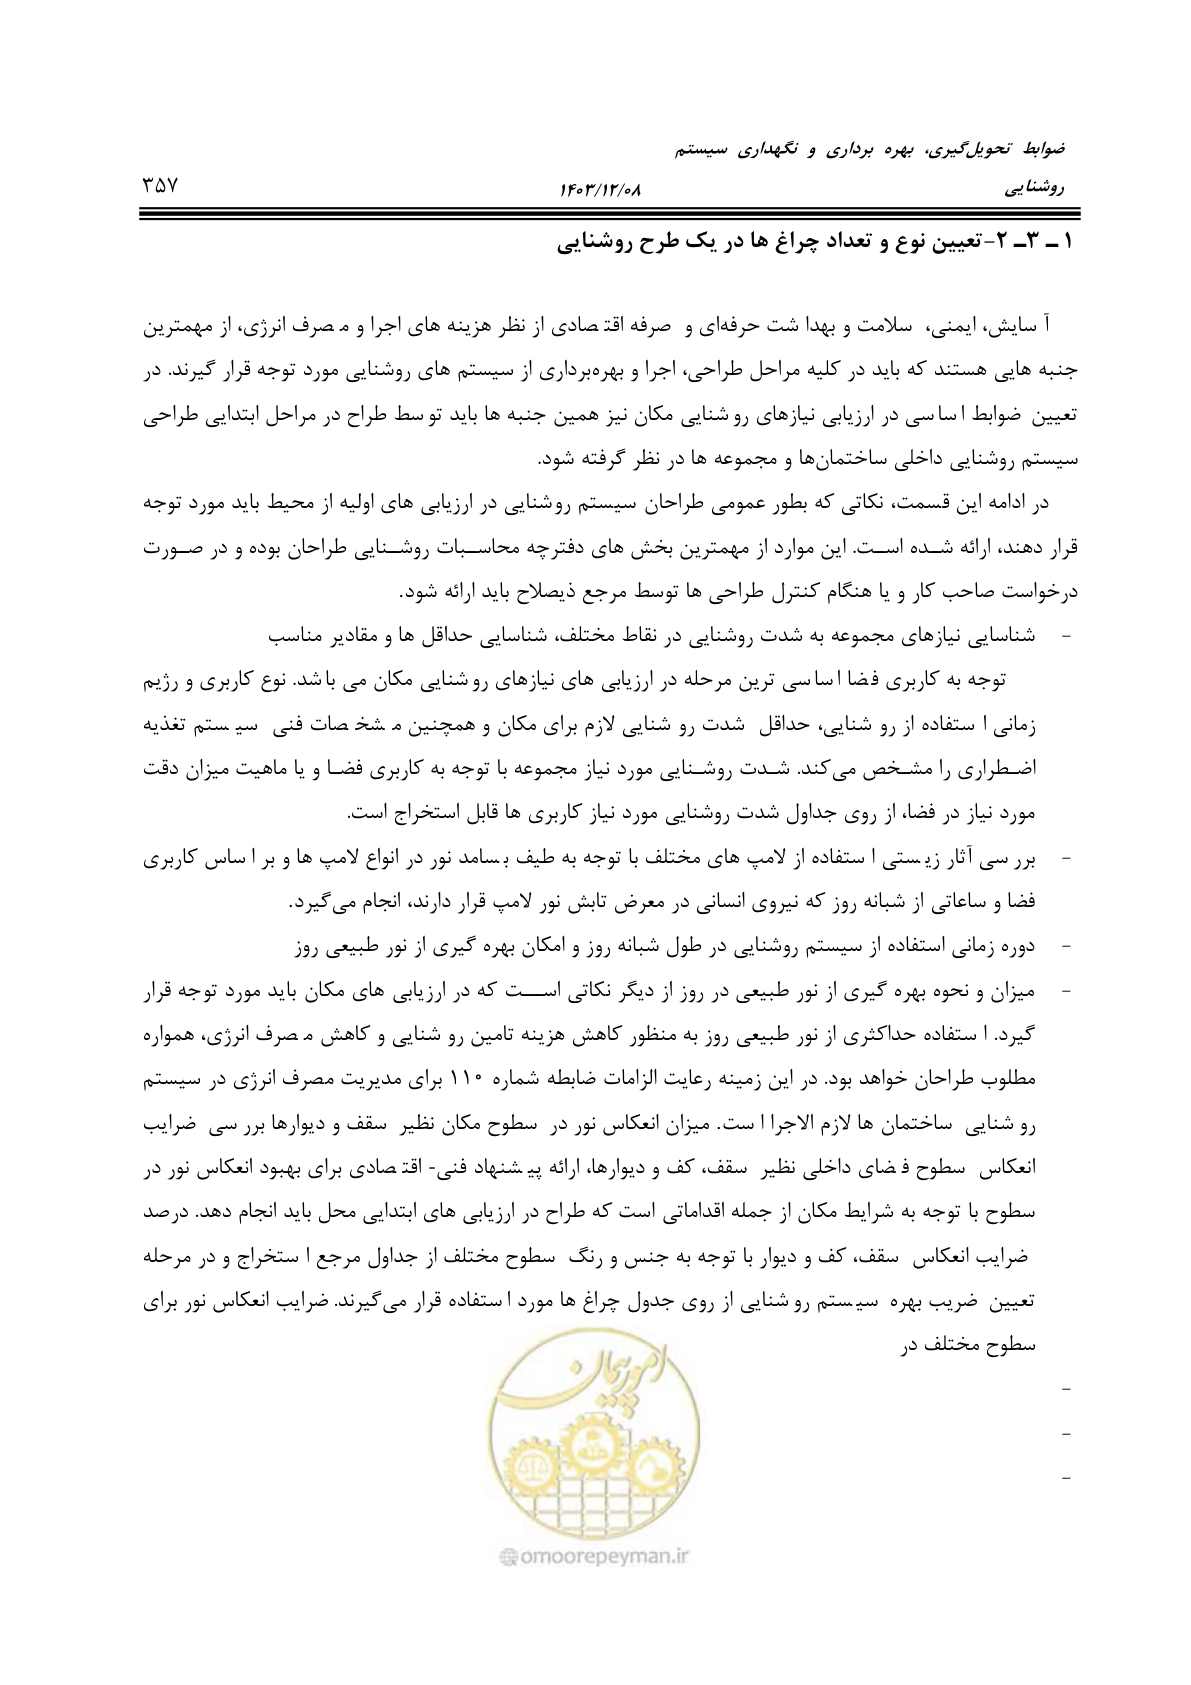 ضوابط تحویل‌گیری، بهره برداری و نگهداری سیستم
روشنایی ۱۴۰۳/۱۲/۰۸ ۳۵۷
۱ ـ ۳ـ ۲-تعیین نوع و تعداد چراغ ها در یک طرح روشنایی
آسایش، ایمنی، سلامت و بهداشت حرفه‌ای و صرفه اقتصادی از نظر هزینه های اجرا و مصرف انرژی، از مهمترین
جنبه هایی هستند که باید در کلیه مراحل طراحی، اجرا و بهره‌برداری از سیستم های روشنایی مورد توجه قرار گیرند. در
تعیین ضوابط اساسی در ارزیابی نیازهای روشنایی مکان نیز همین جنبه ها باید توسط طراح در مراحل ابتدایی طراحی
سیستم روشنایی داخلی ساختمان‌ها و مجموعه ها در نظر گرفته شود.
در ادامه این قسمت، نکاتی که بطور عمومی طراحان سیستم روشنایی در ارزیابی های اولیه از محیط باید مورد توجه
قرار دهند، ارائه شده است. این موارد از مهمترین بخش های دفترچه محاسبات روشنایی طراحان بوده و در صورت
درخواست صاحب کار و یا هنگام کنترل طراحی ها توسط مرجع ذیصلاح باید ارائه شود.
- شناسایی نیازهای مجموعه به شدت روشنایی در نقاط مختلف، شناسایی حداقل ها و مقادیر مناسب
توجه به کاربری فضا اساسی ترین مرحله در ارزیابی های نیازهای روشنایی مکان می باشد. نوع کاربری و رژیم
زمانی استفاده از روشنایی، حداقل شدت روشنایی لازم برای مکان و همچنین مشخصات فنی سیستم تغذیه
اضطراری را مشخص می‌کند. شدت روشنایی مورد نیاز مجموعه با توجه به کاربری فضا و یا ماهیت میزان دقت
مورد نیاز در فضا، از روی جداول شدت روشنایی مورد نیاز کاربری ها قابل استخراج است.
- بررسی آثار زیستی استفاده از لامپ های مختلف با توجه به طیف بسامد نور در انواع لامپ ها و بر اساس کاربری
فضا و ساعاتی از شبانه روز که نیروی انسانی در معرض تابش نور لامپ قرار دارند، انجام می‌گیرد.
- دوره زمانی استفاده از سیستم روشنایی در طول شبانه روز و امکان بهره گیری از نور طبیعی روز
- میزان و نحوه بهره گیری از نور طبیعی در روز از دیگر نکاتی است که در ارزیابی های مکان باید مورد توجه قرار
گیرد. استفاده حداکثری از نور طبیعی روز به منظور کاهش هزینه تامین روشنایی و کاهش مصرف انرژی، همواره
مطلوب طراحان خواهد بود. در این زمینه رعایت الزامات ضابطه شماره ۱۱۰ برای مدیریت مصرف انرژی در سیستم
روشنایی ساختمان ها لازم الاجرا است. میزان انعکاس نور در سطوح مکان نظیر سقف و دیوارها بررسی ضرایب
انعکاس سطوح فضای داخلی نظیر سقف، کف و دیوارها، ارائه پیشنهاد فنی- اقتصادی برای بهبود انعکاس نور در
سطوح با توجه به شرایط مکان از جمله اقداماتی است که طراح در ارزیابی های ابتدایی محل باید انجام دهد. درصد
ضرایب انعکاس سقف، کف و دیوار با توجه به جنس و رنگ سطوح مختلف از جداول مرجع استخراج و در مرحله
تعیین ضریب بهره سیستم روشنایی از روی جدول چراغ ها مورد استفاده قرار می‌گیرند. ضرایب انعکاس نور برای
سطوح مختلف در
-
-
-
امور پیمان
@omoorepeyman.ir